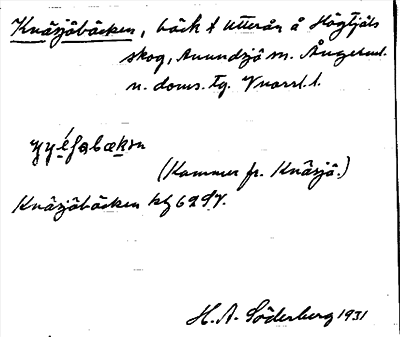 Knäsjöbäcken, bäck t Utterån å Högtjäls
skog, Anundsjö sn. Ångerml.
n. doms. tg. Vnorrl. l.
(Kommer fr. Knäsjö.)
Knäsjöbäcken kg 62 SV.
H. A. Söderberg 1931